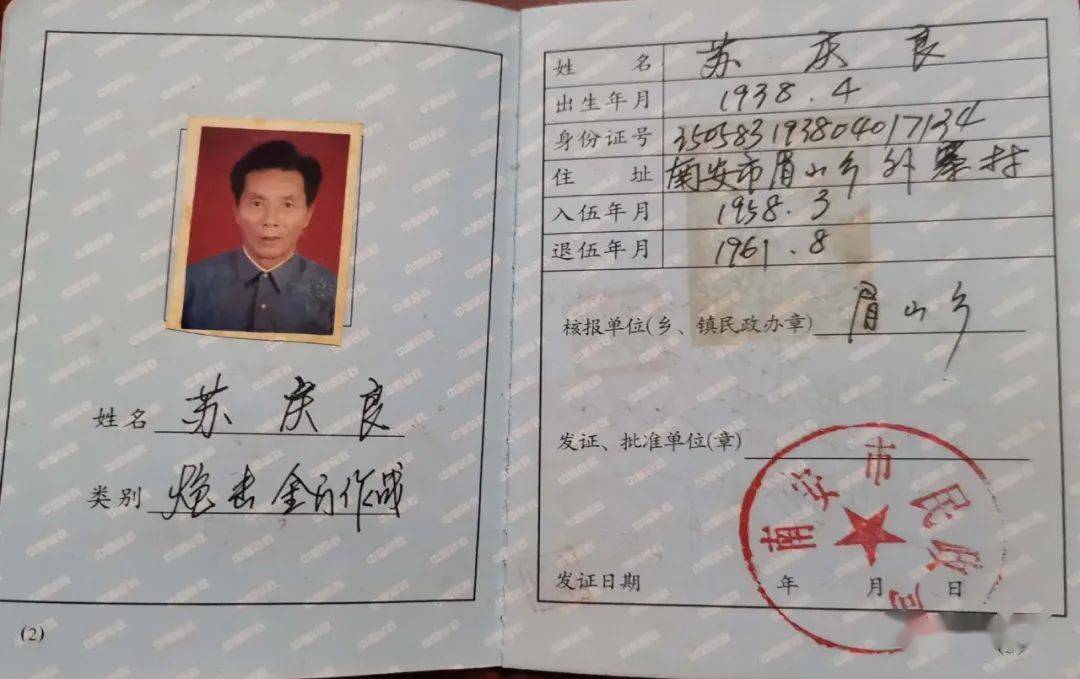 姓名 苏庆良
类别 炮击金门作战
(2)
姓名 苏庆良
出生年月 1938.4
身份证号 350583193804017134
住址 南安市眉山乡外寨村
入伍年月 1958.3
退伍年月 1961.8
核报单位(乡、镇民政办章) 眉山乡
发证、批准单位(章)
南安市民政局
发证日期 年 月 日